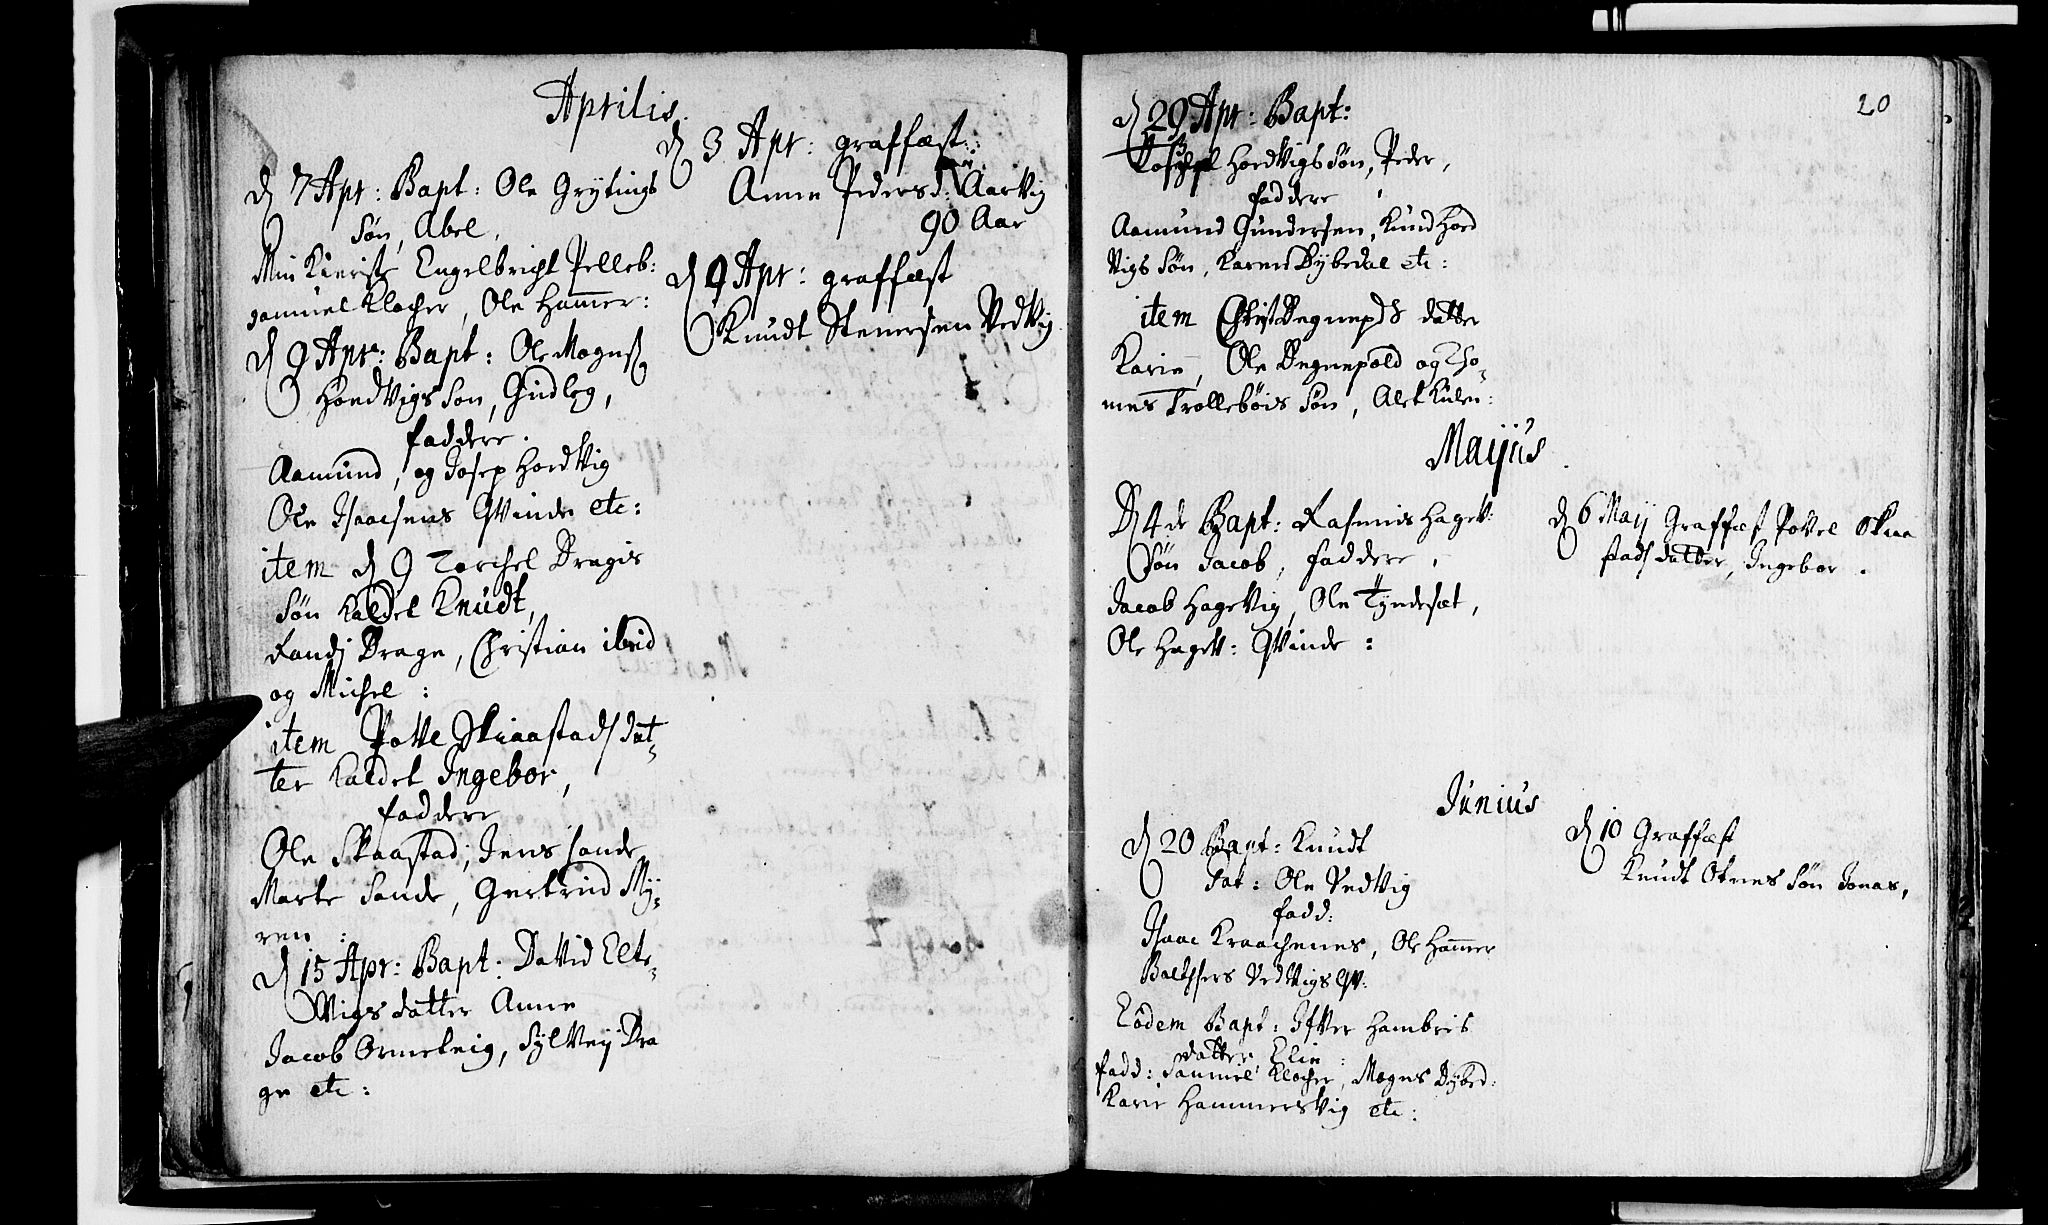 Aprilis.
d 7 Apr: Bapt: Ole Grytings
Søn, Abel,
Min Kieriste Engelbricht Pelleb:
Samuel Klocher, Ole Ham̄er:
d 9 Apr: Bapt: Ole Mogns
HordVigs Son, Gudleg,
faddere.
Aamund, og Josep HordVig
Ole Isaachsens QVinde etc:
item d 9 Torchel Dragis
Søn Kaldet Knudt,
Randj Drage, Christian ibid
og Michel:
item PoVel Skaastads dat-
ter Kaldet Ingebor,
faddere
Ole Skaastad, Jens Sande
Marte Sande, Gertrud My-
ren:
d 15 Apr: Bapt: DaVid Elte-
Vigs datter Anne
Jacob Ormeleig, SylVeij Dra
ge etc:
d 3 Apr: graffæst:
Anne Pedersd: AarVig
90 Aar
d 9 Apr: graffæst
Knudt Stenersen VedVig
20
d 29 Apr: Bapt:
HordVigs Søn, Peder,
faddere
Aamund Gundersen, Knud Hord
Vigs Søn, Karen Dybedal etc:
item Christ Degnepolds datter
Karin, Ole Degnepold og Tho-
mes Trollebøis Søn, Alet Kulen:
Maijus
d 4 de Bapt: Rasmus HageV:
Søn Jacob, faddere,
Jacob HageVig, Ole Tyndesæt,
Ole HageV: QVinde:
d 6 Maij Graffæst PoVel Skaa
stads datter, Ingebor.
Junius
d 20 Bapt: Knudt
Pat: Ole VedVig
fadd:
Isaac Kraachenes, Ole Ham̄er
Baltzers VedVigs QV:
Eodem Bapt: IfVer Hambris
datter Elin:
fadd: Samuel Klocher, Mogns Dybed:
Karin HammersVig etc:
d 10 Graffæst
Knudt Otnes Søn Jonas,